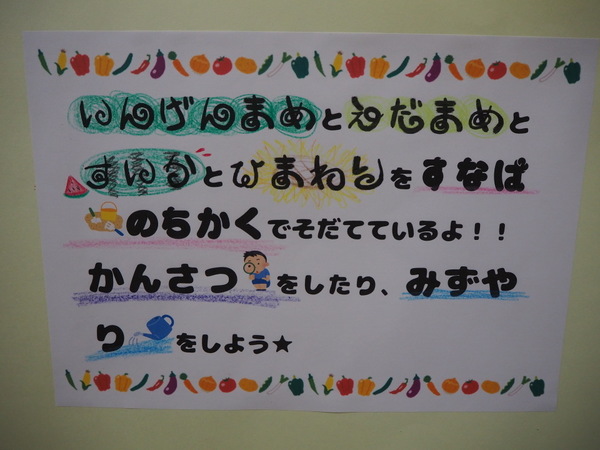 いんげんまめとえだまめと
すいかとひまわりをすなば
のちかくでそだてているよ！！
かんさつをしたり、みずや
りをしよう★